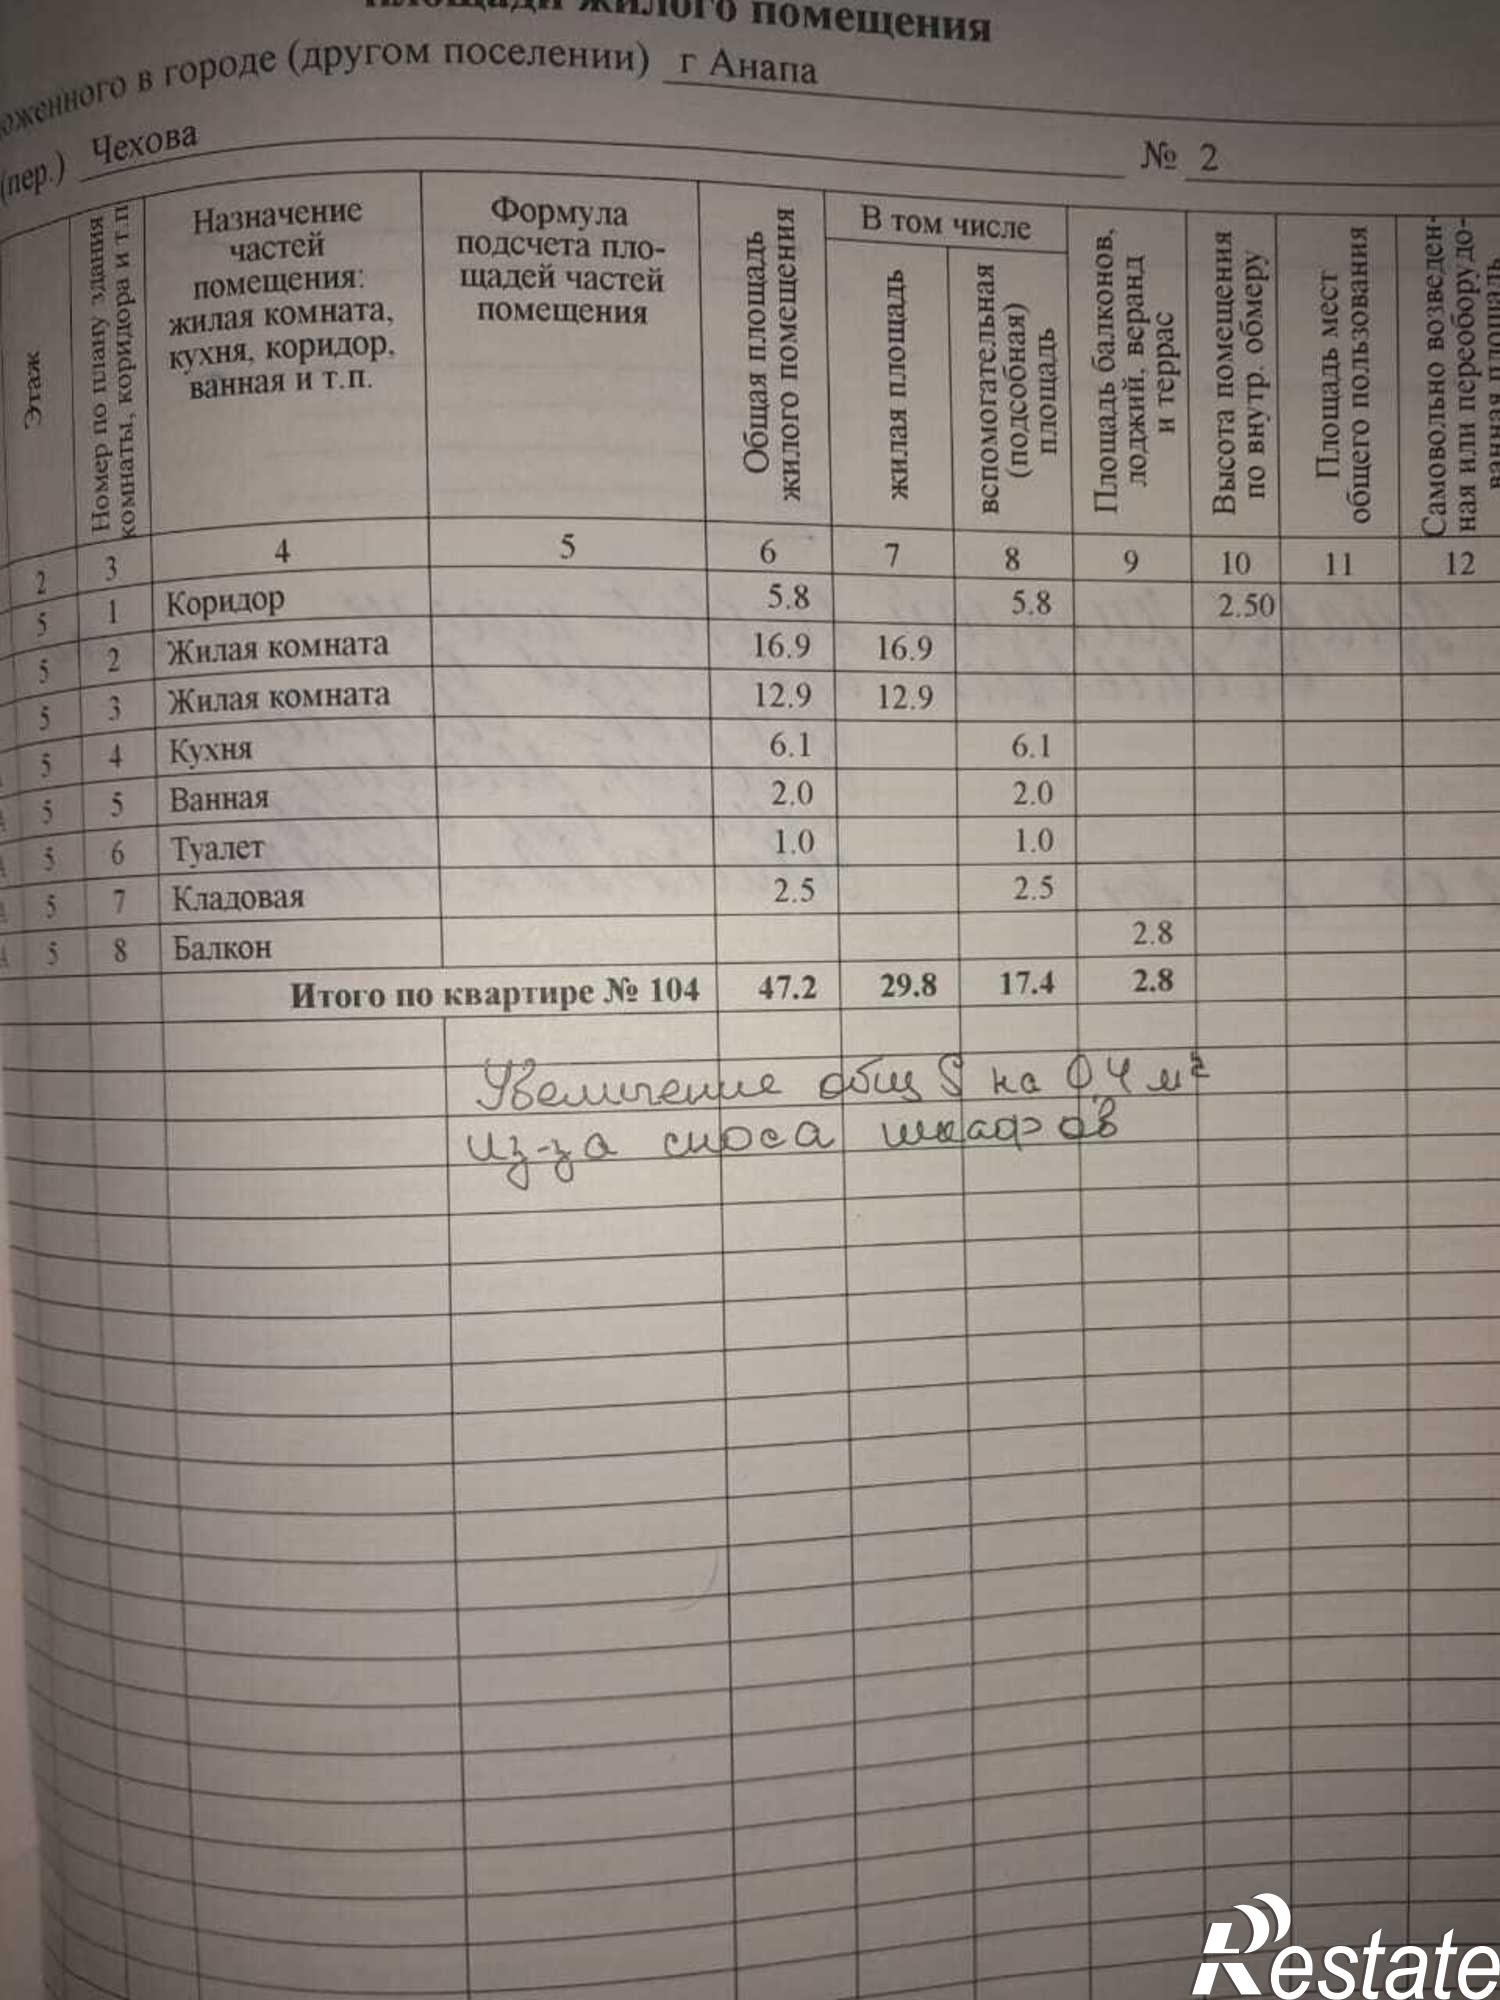 площади жилого помещения
оженного в городе (другом поселении) г Анапа
(пер.) Чехова № 2
Этаж
Номер по плану здания
комнаты, коридора и т.п
Назначение
частей
помещения:
жилая комната,
кухня, коридор,
ванная и т.п.
Формула
подсчета пло-
щадей частей
помещения
Общая площадь
жилого помещения
В том числе
жилая площадь
вспомогательная
(подсобная)
площадь
Площадь балконов,
лоджий, веранд
и террас
Высота помещения
по внутр. обмеру
Площадь мест
общего пользования
Самовольно возведен-
ная или переоборудо-
ванная площадь
2 3 4 5 6 7 8 9 10 11 12
5 1 Коридор 5.8 5.8 2.50
5 2 Жилая комната 16.9 16.9
5 3 Жилая комната 12.9 12.9
5 4 Кухня 6.1 6.1
5 5 Ванная 2.0 2.0
5 6 Туалет 1.0 1.0
5 7 Кладовая 2.5 2.5
5 8 Балкон 2.8
Итого по квартире № 104 47.2 29.8 17.4 2.8
Увеличение общ S на 0,4 м²
из-за сноса шкафов
Restate